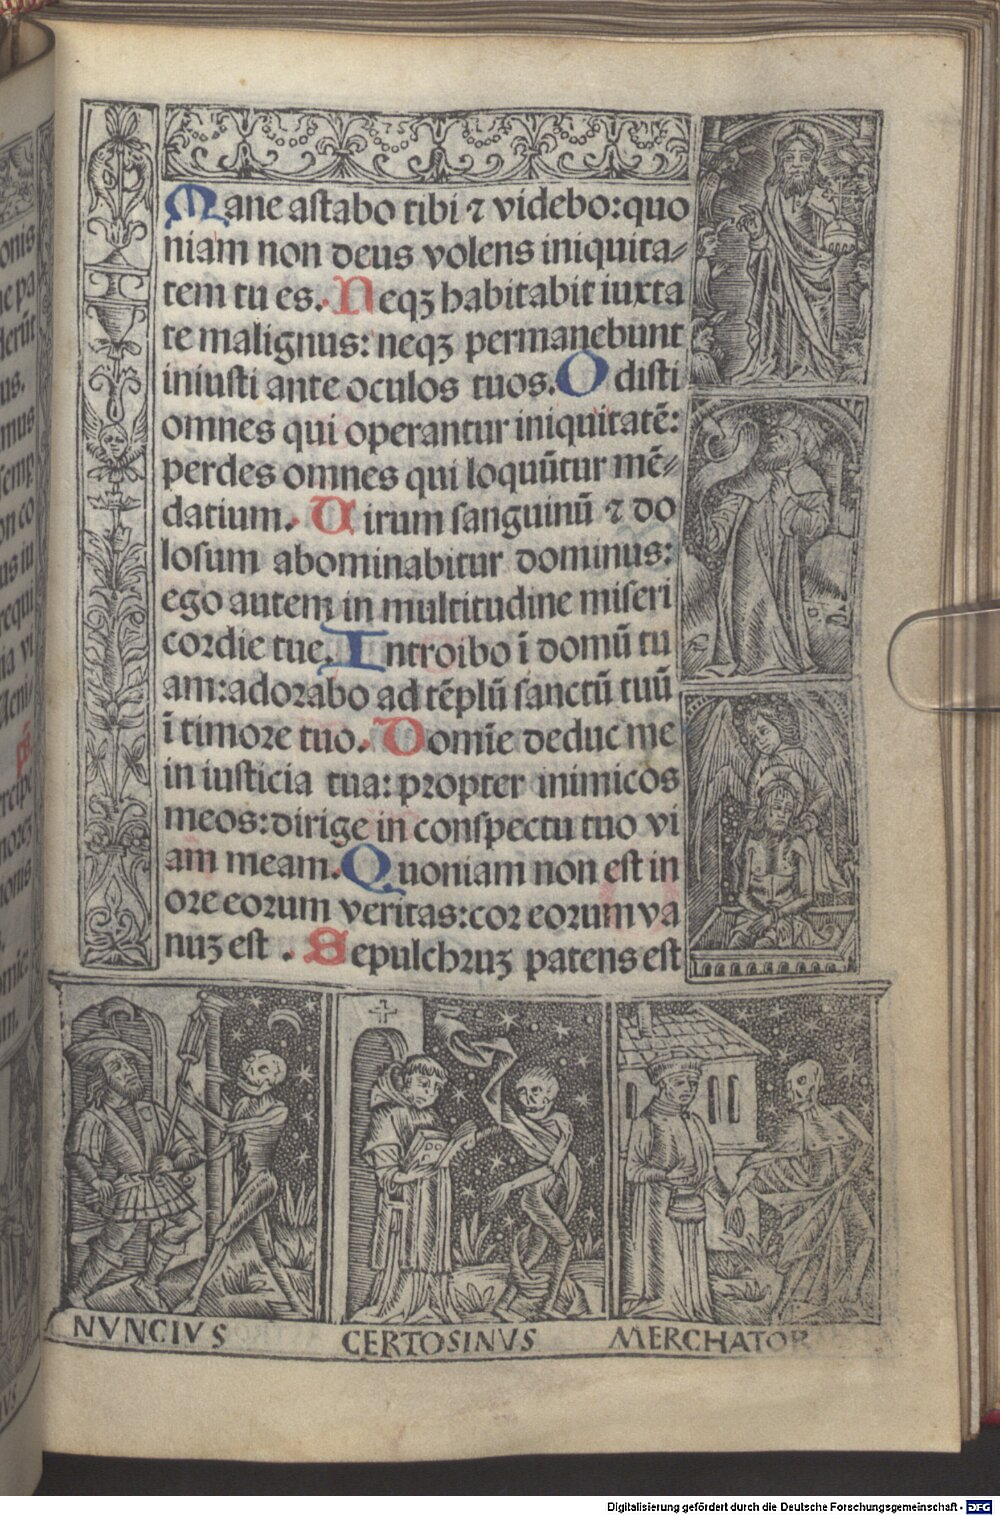 Mane astabo tibi ⁊ videbo: quo
niam non deus volens iniquita⸗
tem tu es. Neqꝫ habitabit iuxta
te malignus: neqꝫ permanebunt
iniusti ante oculos tuos. Odisti
omnes qui operantur iniquitatē:
perdes omnes qui loquūtur mē⸗
datium. Uirum sanguinū ⁊ do
losum abominabitur dominus:
ego autem in multitudine miseri
cordie tue. Introibo ī domū tu
am: adorabo ad tēplū sanctū tuū
ī timore tuo. Domīe deduc me
in iusticia tua: propter inimicos
meos: dirige in conspectu tuo vi
am meam. Quoniam non est in
ore eorum veritas: cor eorum va
nuꝫ est. Sepulchruꝫ patens est
NVNCIVS
CERTOSINVS
MERCHATOR
Digitalisierung gefördert durch die Deutsche Forschungsgemeinschaft - DFG